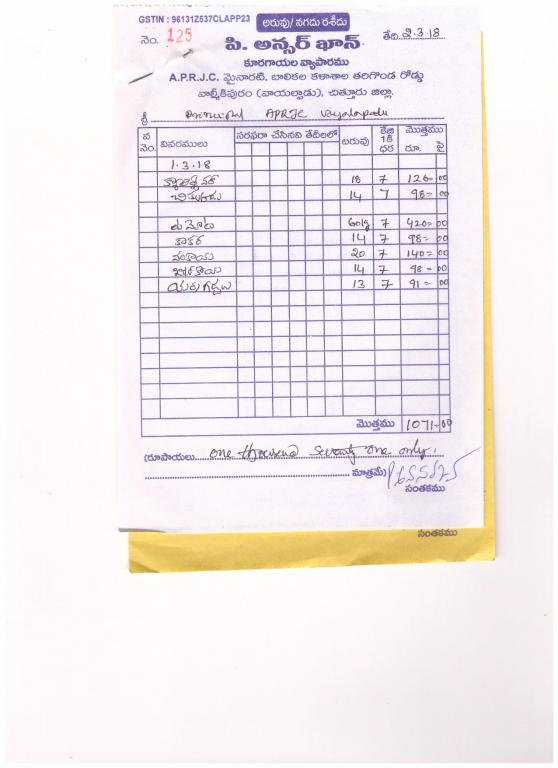 GSTIN : 96131Z537CLAPP23 అరువు/ నగదు రశీదు
నెం. 125 తేది 2.3.18
పి. అన్సర్ ఖాన్
కూరగాయల వ్యాపారము
A.P.R.J.C. మైనారటి, బాలికల కళాశాల తరిగొండ రోడ్డు
వాల్మీకిపురం (వాయల్పాడు), చిత్తూరు జిల్లా.
శ్రీ Principal APRJC Vayalapadu
వ నెం. వివరములు సరఫరా చేసినవి తేదీలలో బరువు కేజి 1కి ధర మొత్తము రూ. పై
1.3.18
18 7 126=00
14 7 98=00
టమోటు 60kg 7 420=00
కాకర 14 7 98=00
వంకాయ 20 7 140=00
14 7 98=00
13 7 91=00
మొత్తము 1071=00
(రూపాయలు one thousand seventy one only.
మాత్రమే)
సంతకము
సంతకము